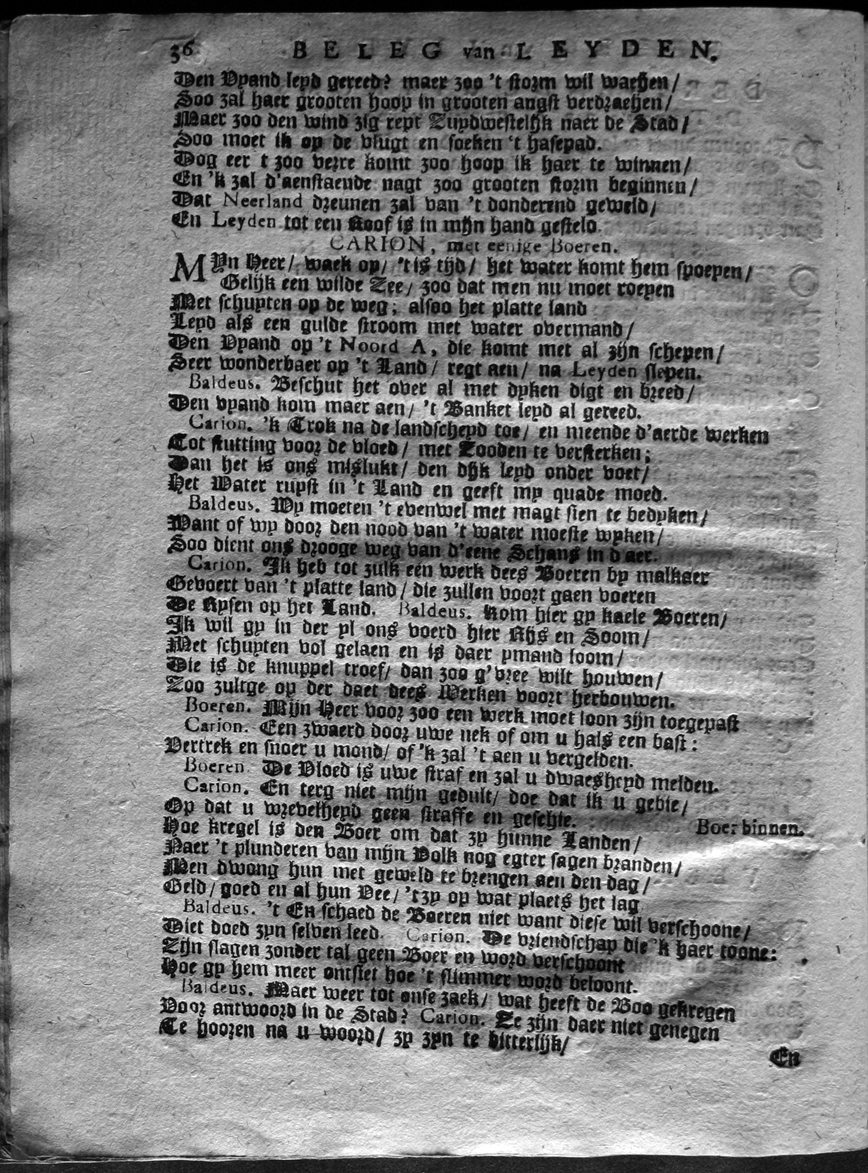 36 BELEG van LEYDEN.
Den Vyand leyd gereed? maer zoo 't storm wil waeyen/
Soo zal haer grooten hoop in grooten angst verdraeyen/
Maer zoo den wind zig rept Zuydwestelijk naer de Stad/
Soo moet ik op de vlugt en soeken 't hasepad.
Dog eer t zoo verre komt zoo hoop ik haer te winnen/
En 'k zal d'aenstaende nagt zoo grooten storm beginnen/
Dat Neerland dreunen zal van 't donderend geweld/
En Leyden tot een Roof is in mijn hand gesteld.
CARION, met eenige Boeren.
MYn Heer/ waek op/ 't is tijd/ het water komt hem spoeyen/
Gelijk een wilde Zee/ zoo dat men nu moet roeyen
Met schuyten op de weg; alsoo het platte land
Leyd als een gulde stroom met water overmand/
Den Vyand op 't Noord A, die komt met al zijn schepen/
Seer wonderbaer op 't Land/ regt aen/ na Leyden slepen.
Baldeus. Beschut het over al met dyken digt en breed/
Den vyand kom maer aen/ 't Banket leyd al gereed.
Carion. 'k Trok na de landscheyd toe/ en meende d'aerde werken
Tot stutting voor de vloed/ met Zooden te versterken;
Dan het is ons mislukt/ den dijk leyd onder voet/
Het Water ruyst in 't Land en geeft my quade moed.
Baldeus. Wy moeten 't evenwel met magt sien te bedyken/
Want of wy door den nood van 't water moeste wyken/
Soo dient ons drooge weg van d'eene Schans in d'aer.
Carion. Ik heb tot zulk een werk dees Boeren by malkaer
Gevoert van 't platte land/ die zullen voort gaen voeren
De Rysen op het Land. Baldeus. Kom hier gy kaele Boeren/
Ik wil gy in der yl ons voerd hier Rijs en Soom/
Met schuyten vol gelaen en is daer ymand loom/
Die is de knuppel troef/ dan zoo g'vree wilt houwen/
Zoo zultge op der daet dees Werken voort herbouwen.
Boeren. Mijn Heer voor zoo een werk moet loon zijn toegepast
Carion. Een zwaerd door uwe nek of om u hals een bast:
Vertrek en snoer u mond/ of 'k zal 't aen u vergelden.
Boeren. De Vloed is uwe straf en zal u dwaesheyd melden.
Carion. En terg niet mijn gedult/ doe dat ik u gebie/
Op dat u wrevelheyd geen straffe en geschie. Boer binnen.
Hoe kregel is den Boer om dat zy hunne Landen/
Naer 't plunderen van mijn Volk nog egter sagen branden/
Men dwong hun met geweld te brengen aen den dag/
Geld/ goed en al hun Vee/ 't zy op wat plaets het lag
Baldeus. 't En schaed de Boeren niet want diese wil verschoone/
Diet doed zyn selven leed. Carion. De vriendschap die 'k haer toone:
Zijn slagen zonder tal geen Boer en word verschoont
Hoe gy hem meer ontsiet hoe 't slimmer word beloont.
Baldeus. Maer weer tot onse zaek/ wat heeft de Boo gekregen
Voor antwoord in de Stad? Carion. Ze zijn daer niet genegen
Te hooren na u woord/ zy zyn te bitterlijk/
En